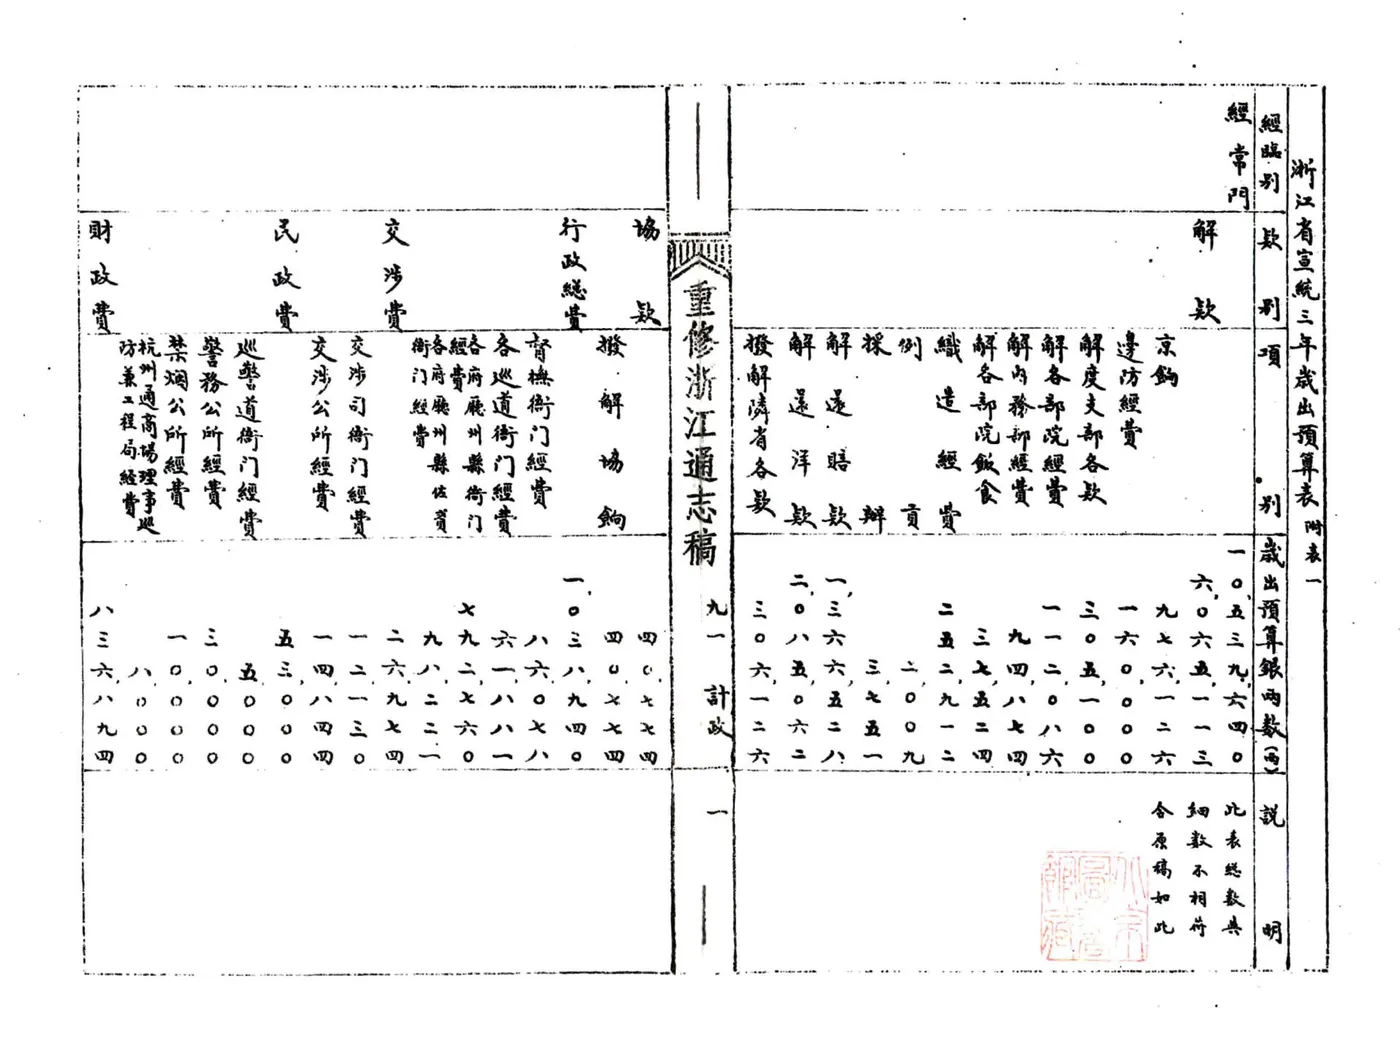 浙江省宣統三年歲出預算表 附表一
經臨別 款別 項別 歲出預算銀兩數(兩) 說明
經常門 一〇,五三九,六四〇 此表總數與
解款 六,〇六五,一一三 細數不相符
京餉 九七六,一二六 合原稿如此
邊防經費 一六〇,〇〇〇
解度支部各款 三〇五,一〇〇
解各部院經費 一一二,〇八六
解內務部經費 九四,八七四
解各部院飯食 三七,五二四
織造經費 二五二,九一二
例貢 二,〇〇九
採辦 三,七五一
解還賠款 一,三六六,五二八
解還洋款 二,〇八五,〇六二
撥解隣省各款 三〇六,一二六
重修浙江通志稿 九一 計政 一
協款 四〇,七七四
撥解協餉 四〇,七七四
行政總費 一,〇三八,九四〇
督撫衙門經費 八六,〇七八
各巡道衙門經費 六一,八八一
各府廳州縣衙門經費 七九二,七六〇
各府廳州縣佐貳衙門經費 九八,二二一
交涉費 二六,九七四
交涉司衙門經費 一二,一三〇
交涉公所經費 一四,八四四
民政費 五三,〇〇〇
巡警道衙門經費 五,〇〇〇
警務公所經費 三〇,〇〇〇
禁烟公所經費 一〇,〇〇〇
杭州通商場理事巡防兼工程局經費 八,〇〇〇
財政費 八三六,八九四